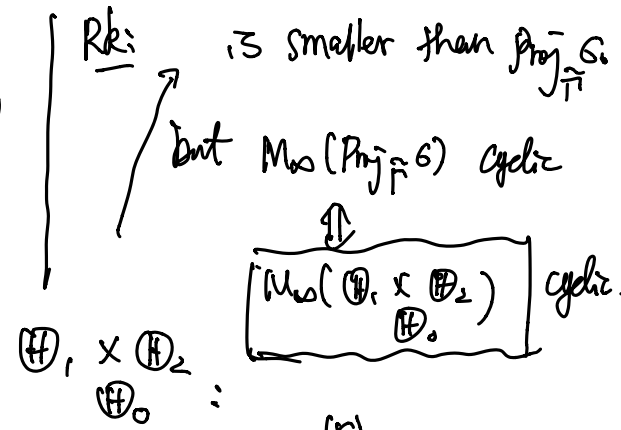 Rk: is smaller than Proj_Γ̃ σ.
but M_∞(Proj_Γ̃ σ) cyclic
⇕
M_∞(Ⓗ₁ × Ⓗ₂) cyclic.
Ⓗ₀
Ⓗ₁ × Ⓗ₂
Ⓗ₀ :